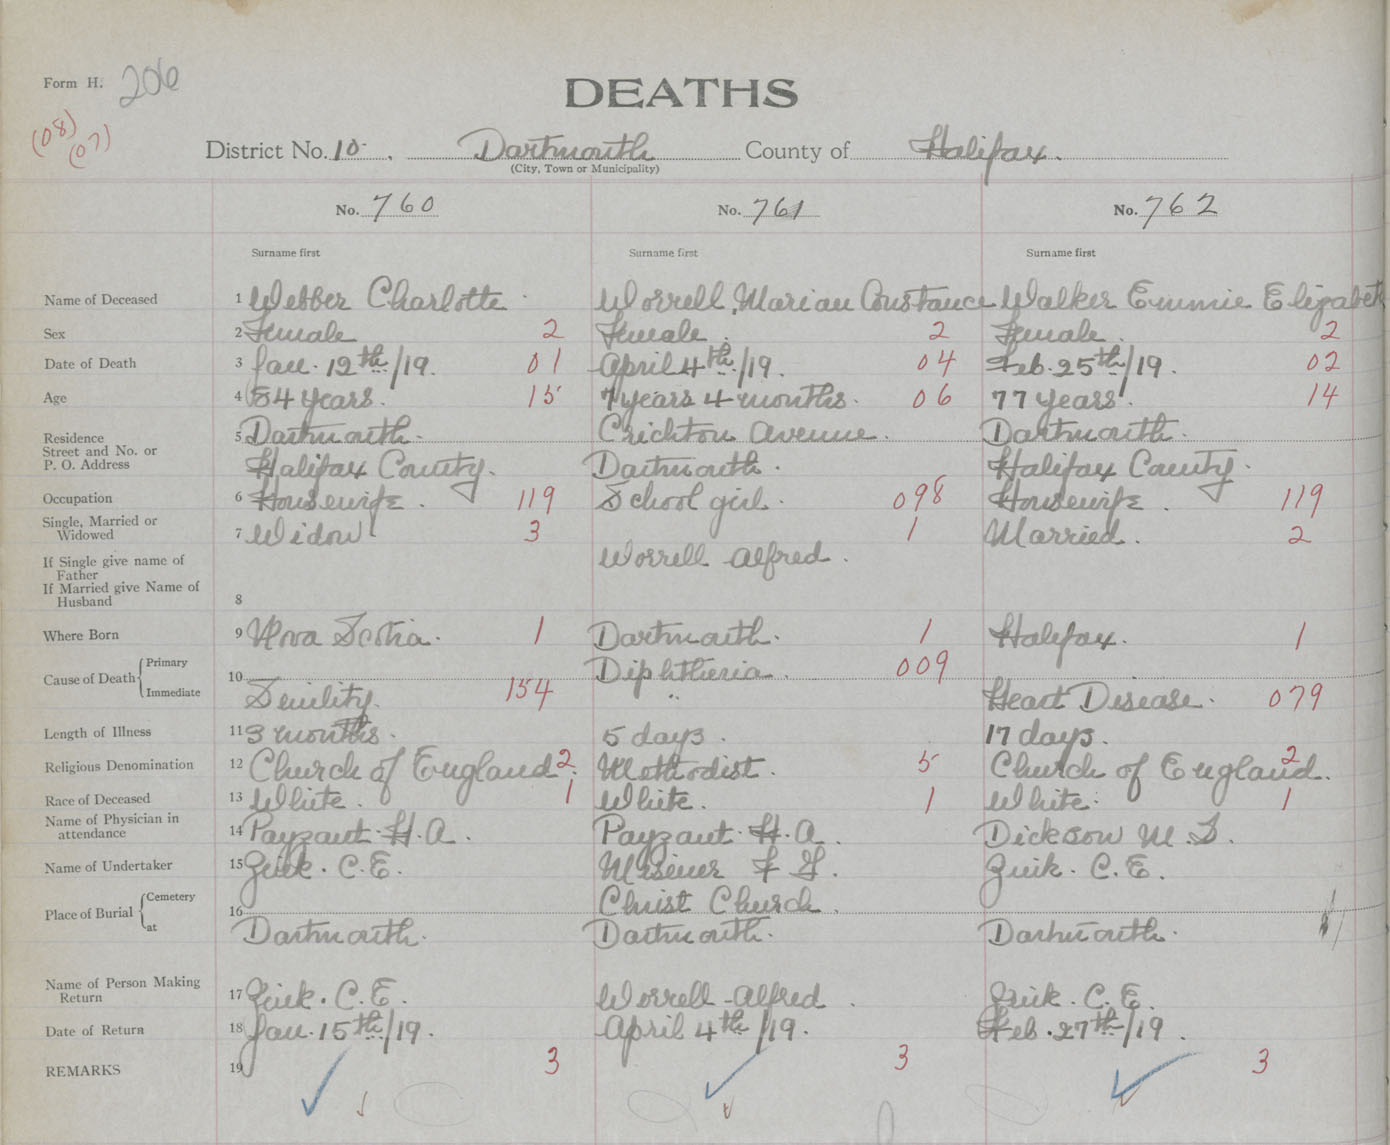 Form H. 206
DEATHS
(08)
(07)
District No. 10 . Dartmouth County of Halifax.
(City, Town or Municipality)
No. 760 No. 761 No. 762
Surname first Surname first Surname first
Name of Deceased 1 Webber Charlotte Worrell, Marian Constance Walker Emmie Elizabeth
Sex 2 Female 2 Female. 2 Female. 2
Date of Death 3 Jan. 12th/19. 01 April 4th/19. 04 Feb. 25th/19. 02
Age 4 84 years. 15 7 years 4 months. 06 77 years. 14
Residence
Street and No. or
P. O. Address
5 Dartmouth. Crichton Avenue. Dartmouth.
Halifax County. Dartmouth. Halifax County.
Occupation 6 Housewife. 119 School girl. 098 Housewife. 119
Single, Married or
Widowed
7 Widow 3 1 Married. 2
If Single give name of
Father
Worrell Alfred.
If Married give Name of
Husband
8
Where Born 9 Nova Scotia. 1 Dartmouth. 1 Halifax. 1
Cause of Death Primary 10 Diphtheria. 009
Immediate Senility. 154 " Heart Disease. 079
Length of Illness 11 3 months. 5 days. 17 days.
Religious Denomination 12 Church of England 2. Methodist. 5 Church of England. 2
Race of Deceased 13 White. 1 White. 1 White. 1
Name of Physician in
attendance
14 Payzant H. A. Payzant H. A. Dickson M. S.
Name of Undertaker 15 Zink. C. E. Misener F G. Zink. C. E.
Place of Burial Cemetery 16 Christ Church.
at Dartmouth. Dartmouth. Dartmouth.
Name of Person Making
Return
17 Zink. C. E. Worrell Alfred. Zink. C. E.
Date of Return 18 Jan. 15th/19. April 4th/19. Feb. 27th/19
REMARKS 19 3 3 3